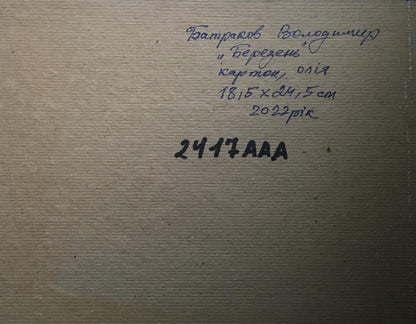 Батраков Володимир
„Березень"
картон, олія
18,5 x 24,5 см
2022 рік
2417AAA